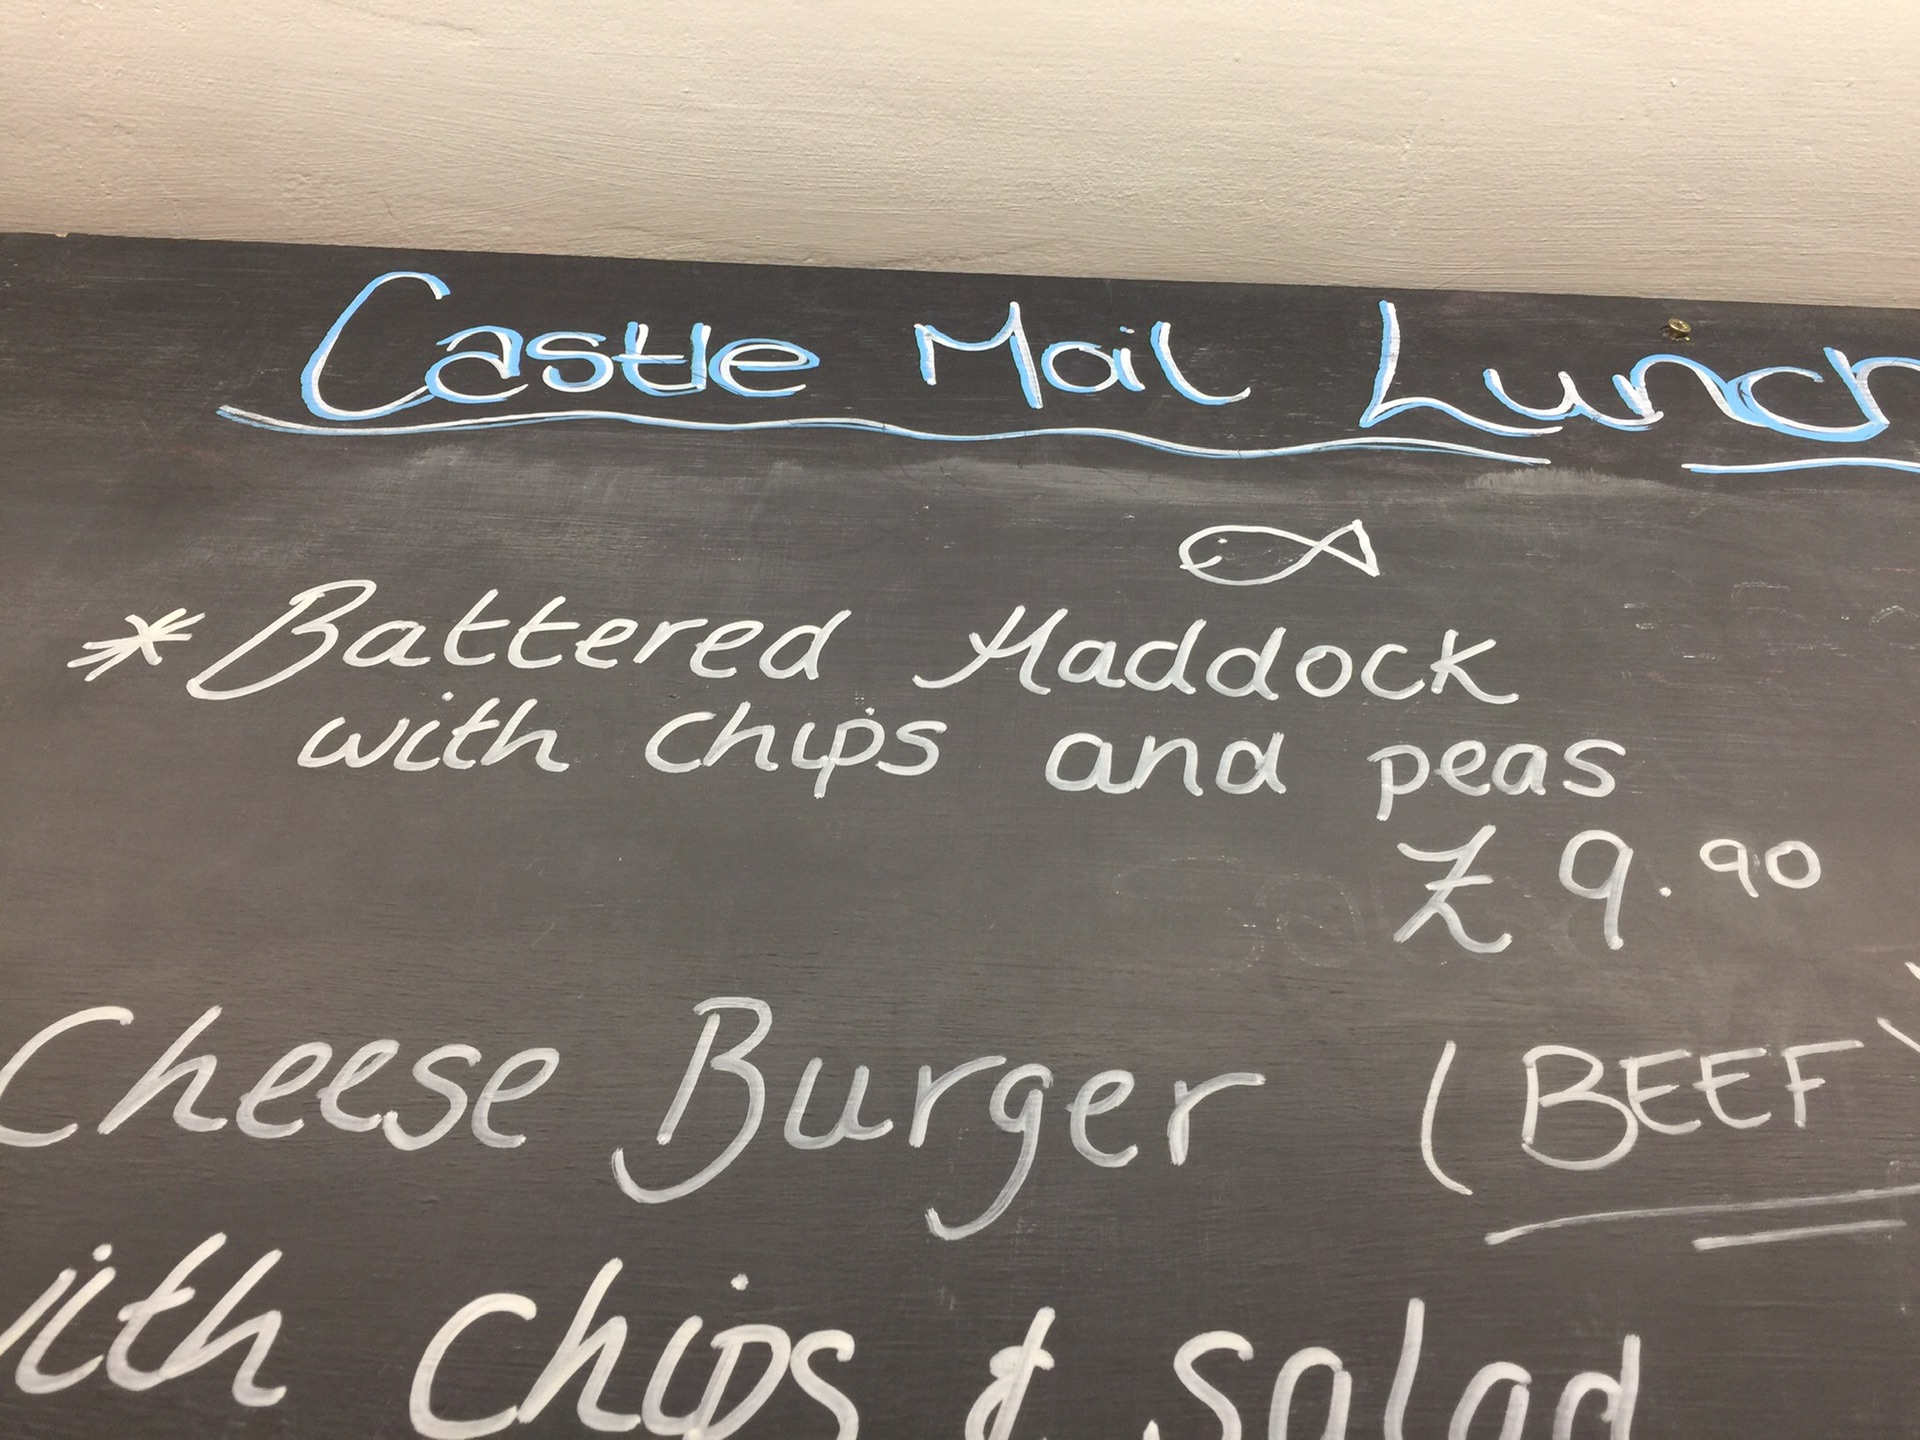 Castle Moil Lunch
*Battered Haddock
with chips and peas
£9.90
Cheese Burger (BEEF)
with chips & Salad